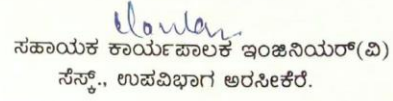 ಸಹಾಯಕ ಕಾರ್ಯಪಾಲಕ ಇಂಜಿನಿಯರ್(ವಿ)
ಸೆಸ್ಕ್., ಉಪವಿಭಾಗ ಅರಸೀಕೆರೆ.